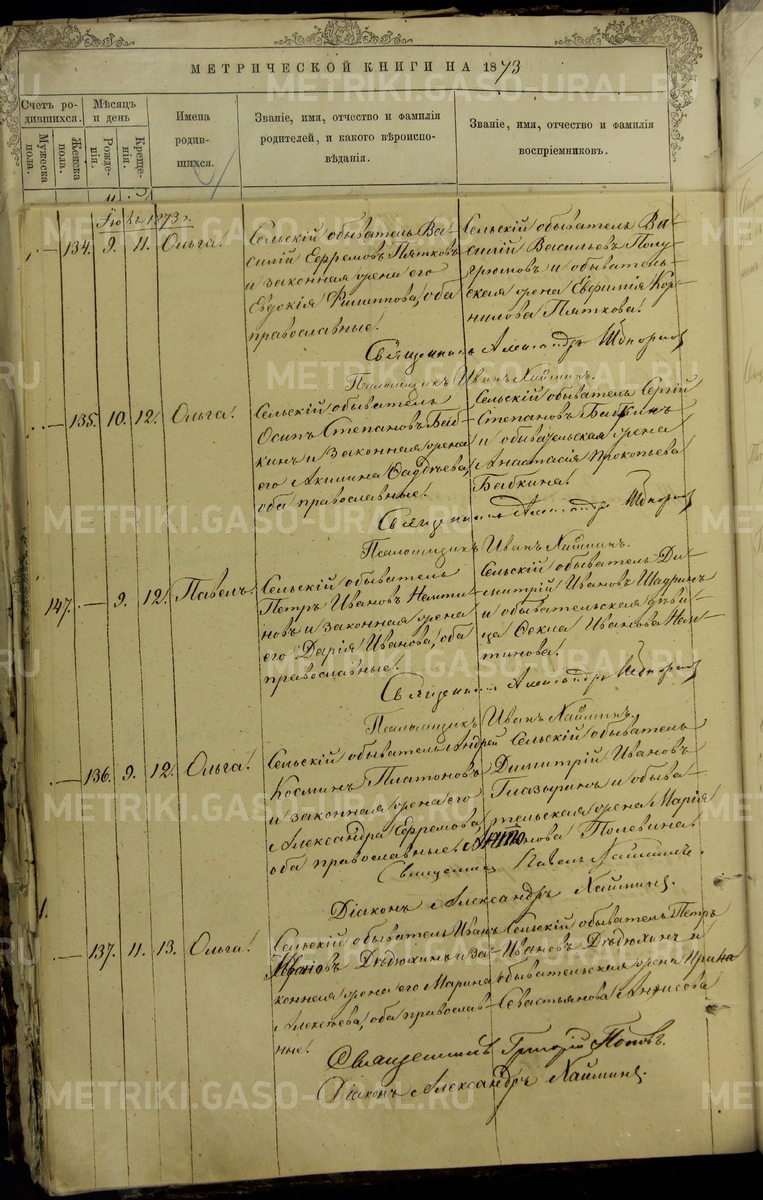 МЕТРИЧЕСКОЙ КНИГИ НА 1873
Счетъ ро-
дившихся.
Мужеска
пола.
Женска
пола.
Мѣсяцъ
и день
Рожде-
нія.
Креще-
нія.
Имена
родив-
шихся.
Званіе, имя, отчество и фамилія
родителей, и какого вѣроиспо-
вѣданія.
Званіе, имя, отчество и фамилія
воспріемниковъ.
Іюль 1873 г.
134. 9. 11. Ольга!
Сельскій обыватель Ва-
силій Ефремовъ Пятковъ
и законная жена его
Евдокія Филиппова, оба
православные!
Сельскій обыватель Ва-
силій Васильевъ Полу-
грюмовъ и обыватель-
ская жена Евфимія Кор-
нилова Пяткова!
Священникъ Александръ
Псаломщикъ Иванъ Хаймин.
135. 10. 12. Ольга!
Сельскій обыватель
Осипъ Степановъ Баб-
кинъ и законная жена
его Акилина Фаддѣева,
оба православные!
Сельскій обыватель Сергій
Степановъ Бабкинъ
и обывательская жена
Анастасія Прокопьева
Бабкина!
Священникъ Александръ
Псаломщикъ Иванъ Хаймин.
147. — 9. 12. Павелъ.
Сельскій обыватель
Петръ Ивановъ Немти-
новъ и законная жена
его Дарія Иванова, оба
православные!
Сельскій обыватель Ди-
митрій Ивановъ Шадринъ
и обывательская дѣви-
ца Фекла Иванова Нем-
тинова!
Священникъ Александръ
Псаломщикъ Иванъ Хаймин.
136. 9. 12. Ольга!
Сельскій обыватель Андрей
Космин Платоновъ
и законная жена его
Александра Ефремова,
оба православные!
Сельскій обыватель
Димитрій Ивановъ
Глазыринъ и обыва-
тельская жена Марія
Антонова Полевина!
Священникъ Павелъ Хайминъ.
Діаконъ Александръ Хайминъ.
137. 11. 13. Ольга!
Сельскій обыватель Иванъ
Дѣдюхинъ и за-
конная жена его Марина
Алексѣева, оба православ-
ные!
Сельскій обыватель Петръ
Ивановъ Дѣдюхинъ и
обывательская жена Ирина
Севастьянова Анфисова
Священникъ Григорій Поповъ.
Діаконъ Александръ Хайминъ.
METRIKI.GASO-URAL.RU